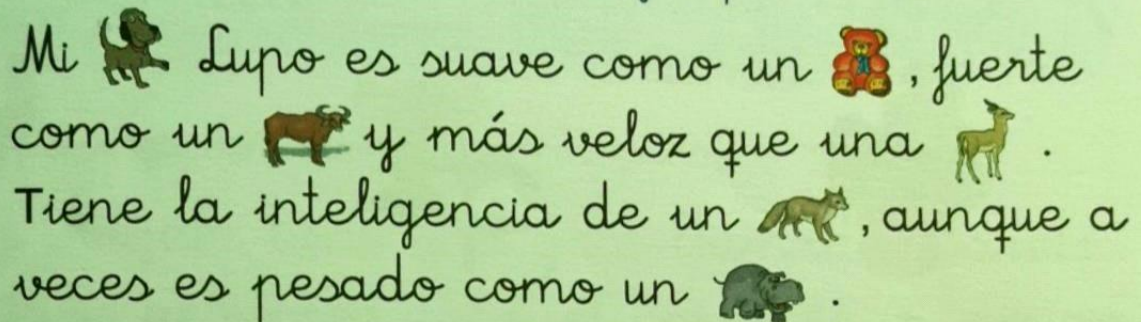 Mi Lupo es suave como un , fuerte
como un y más veloz que una .
Tiene la inteligencia de un , aunque a
veces es pesado como un .